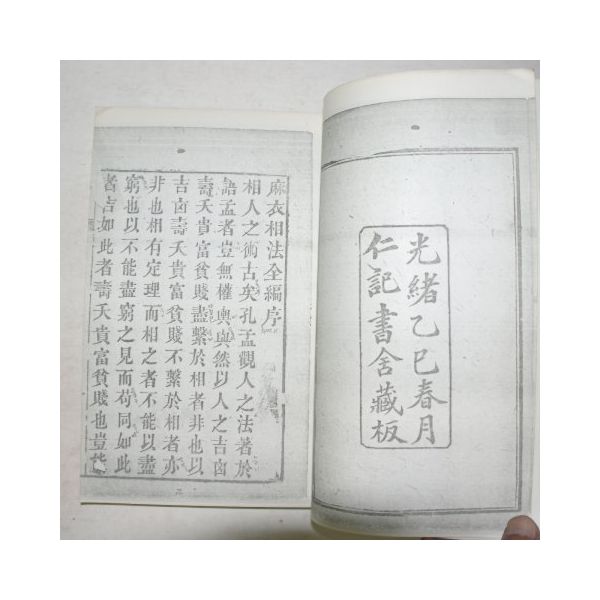 光緒乙巳春月
仁記書舍藏板
麻衣相法全編序
相人之術古矣孔孟觀人之法著於
語孟者豈無權輿與然以人之吉凶
壽夭貴富貧賤盡繫於相者非也以
吉凶壽夭貴富貧賤不繫於相者亦
非也相有定理而相之者不能以盡
窮也以不能盡窮之見而苟同如此
者吉如此者壽夭貴富貧賤也豈能